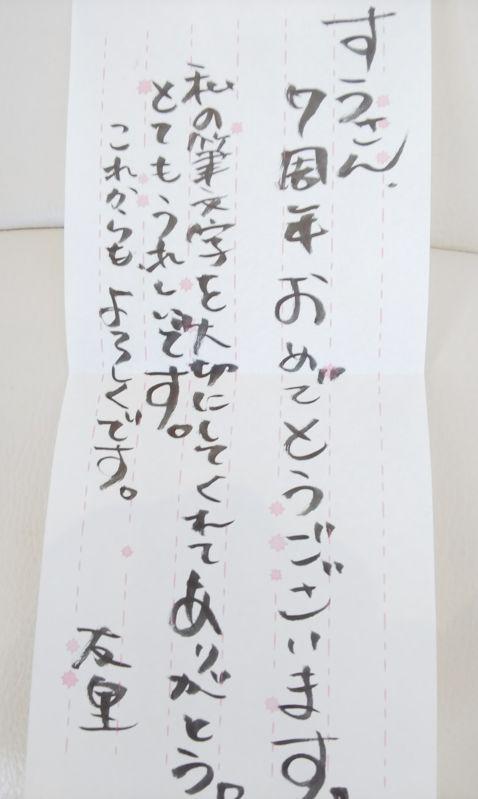 すうさん、
7周年おめでとうございます。
私の筆文字を大切にしてくれてありがとう。
とてもうれしいです。
これからも、よろしくです。
友里